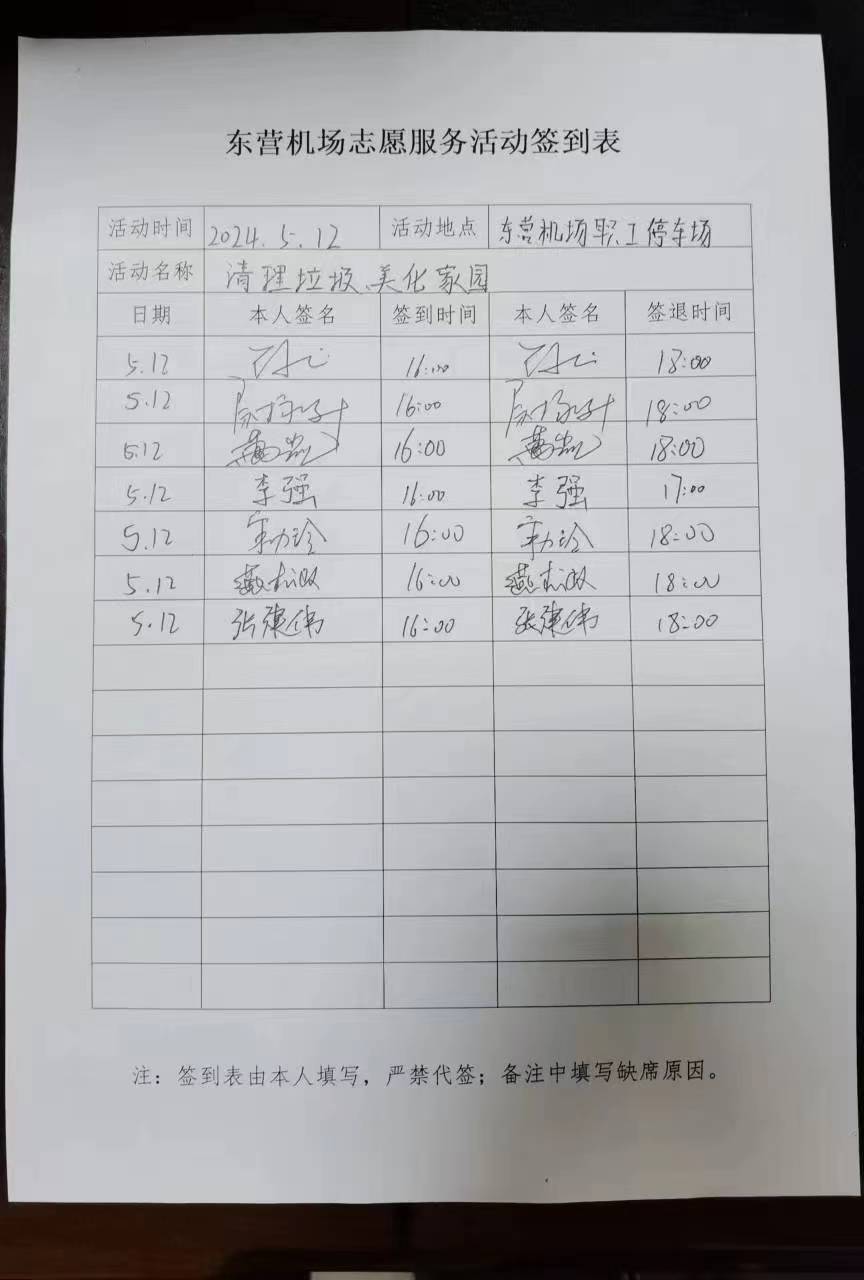 东营机场志愿服务活动签到表
活动时间 2024.5.12 活动地点 东营机场职工停车场
活动名称 清理垃圾、美化家园
日期 本人签名 签到时间 本人签名 签退时间
5.12 16:00 18:00
5.12 16:00 18:00
5.12 16:00 18:00
5.12 李强 16:00 李强 17:00
5.12 16:00 18:00
5.12 16:00 18:00
5.12 张建伟 16:00 张建伟 18:00
注：签到表由本人填写，严禁代签；备注中填写缺席原因。